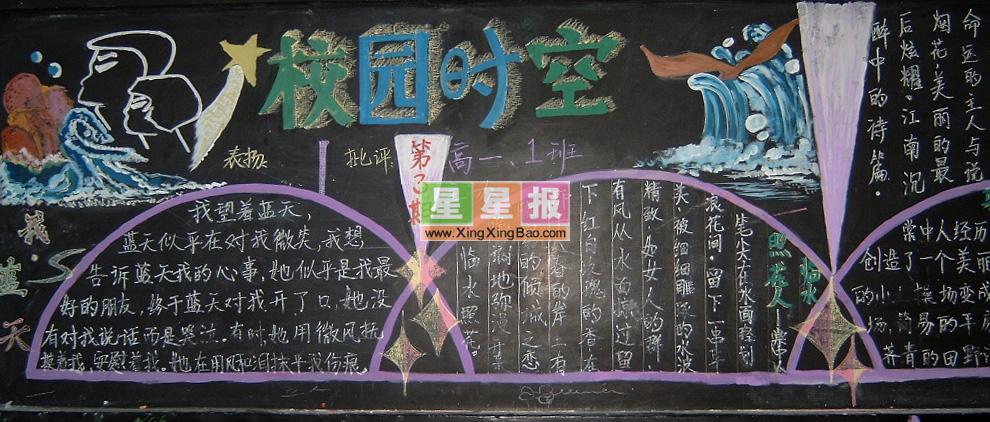 校园时空
表扬:
批评:
高一、1班
第2期
星星报
www.XingXingBao.com
我与蓝天
我望着蓝天,
蓝天似乎在对我微笑,我想
告诉蓝天我的心事,她似乎是我最
好的朋友,终于蓝天对我开了口,她没
有对我说话而是哭泣,有时,她用微风抚
摸着我,安慰着我。她在用风和泪抹平我伤痕
临水
照花人
笔尖在水面轻划
浪花间,留下一串
被细细雕琢的水波
精致,如女人的群
有风从水面掠过留
下红白玫瑰的香在
的倾城之恋
临水照花。
命运的主人与说
烟花美丽的最
后炫耀。江南沉
醉中的诗篇。
棠中人经历
创造了一个美丽
的小操场变成
场,简易的平房
荠青的田野